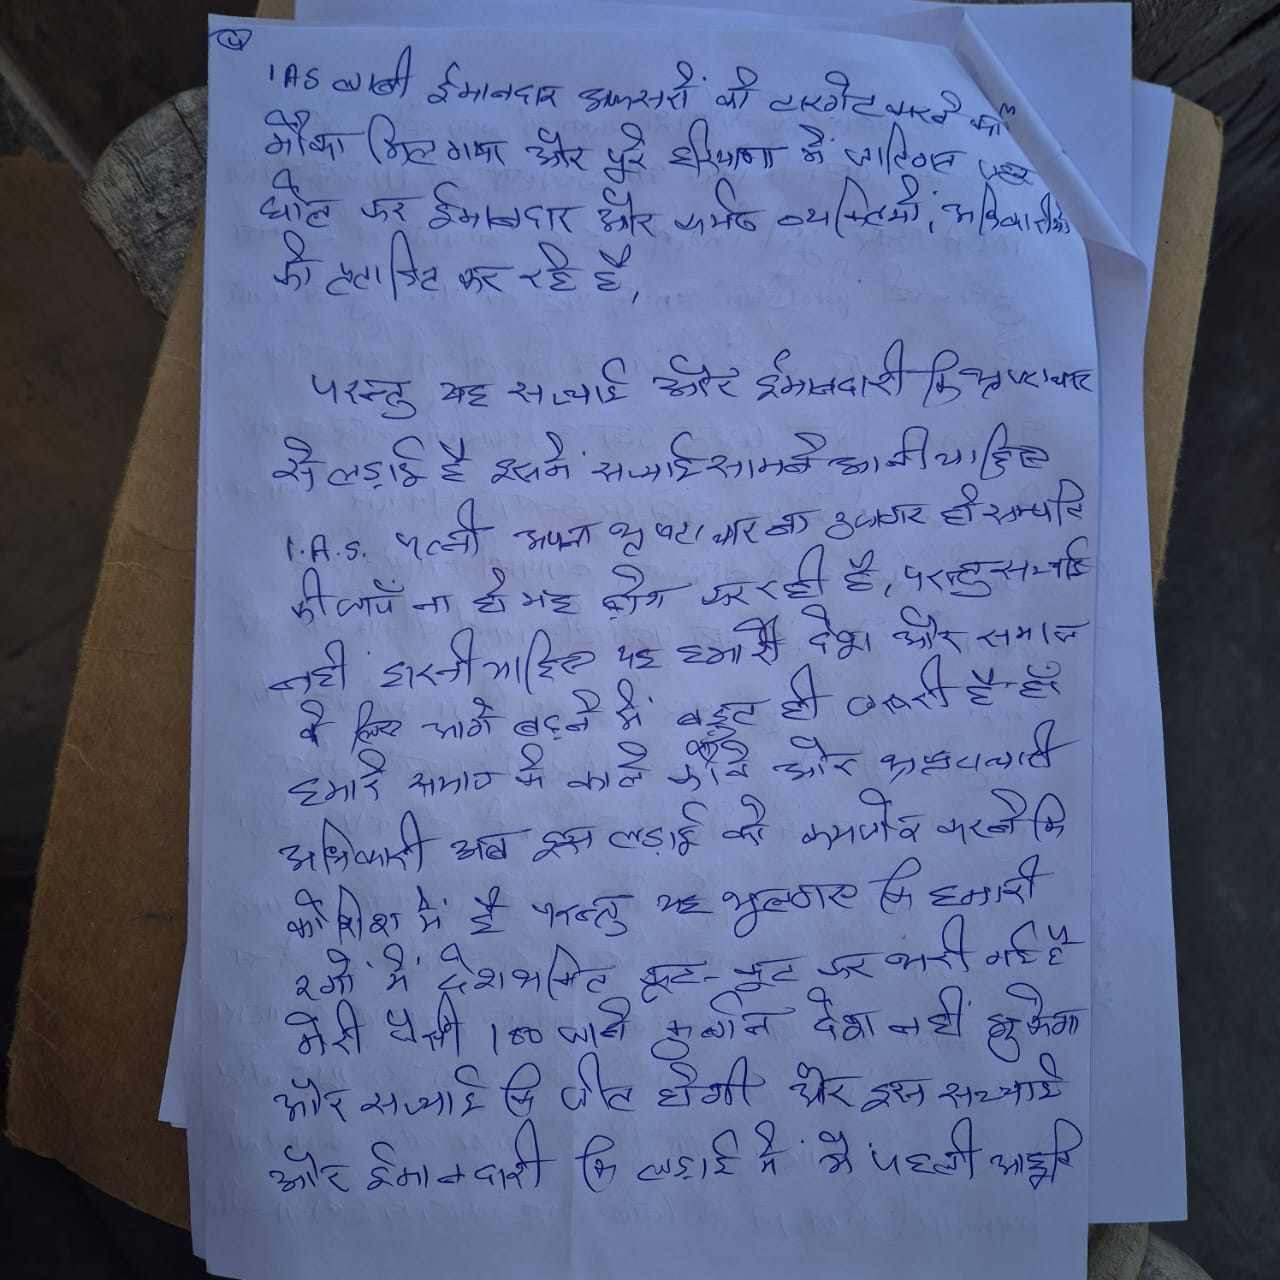 IAS लाबी ईमानदार अफसरो को टारगेट करने का
मौका मिल गया और पुरे हरियाणा में जातिगत जहर
घोल कर ईमानदार और कर्मठ व्यक्तियों, अधिकारीयो
को प्रताडित कर रहे है,
परन्तु यह सच्चाई और ईमानदारी कि भ्रष्टाचार
से लड़ाई है इसमें सच्चाई सामने आनी चाहिए
I.A.S. पत्नी अपना भ्रष्टाचार ना उजागर हो सम्पति
की जाचँ ना हो यह ढोंग कर रही है, परन्तु सच्चाई
नही हारनी चाहिए यह हमारे देश और समाज
के लिए आगे बढ़ने में बहुत ही जरुरी है
हमारे समाज के काले कौवे और भ्रष्टाचारी
अधिकारी अब इस लड़ाई को कमजोर करने कि
कोशिश में है परन्तु यह भुल गए कि हमारी
रगों में देशभक्ति कूट-कूट कर भरी गई है
मेरी जैसी 100 जाने कुर्बान देश नहीं झुकेगा
और सच्चाई कि जीत होगी और इस सच्चाई
और ईमानदारी कि लड़ाई में मै पहली आहुति